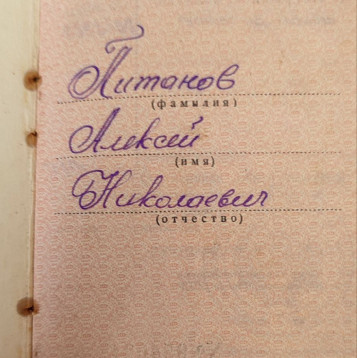 Титанов
(фамилия)
Алексей
(имя)
Николаевич
(отчество)